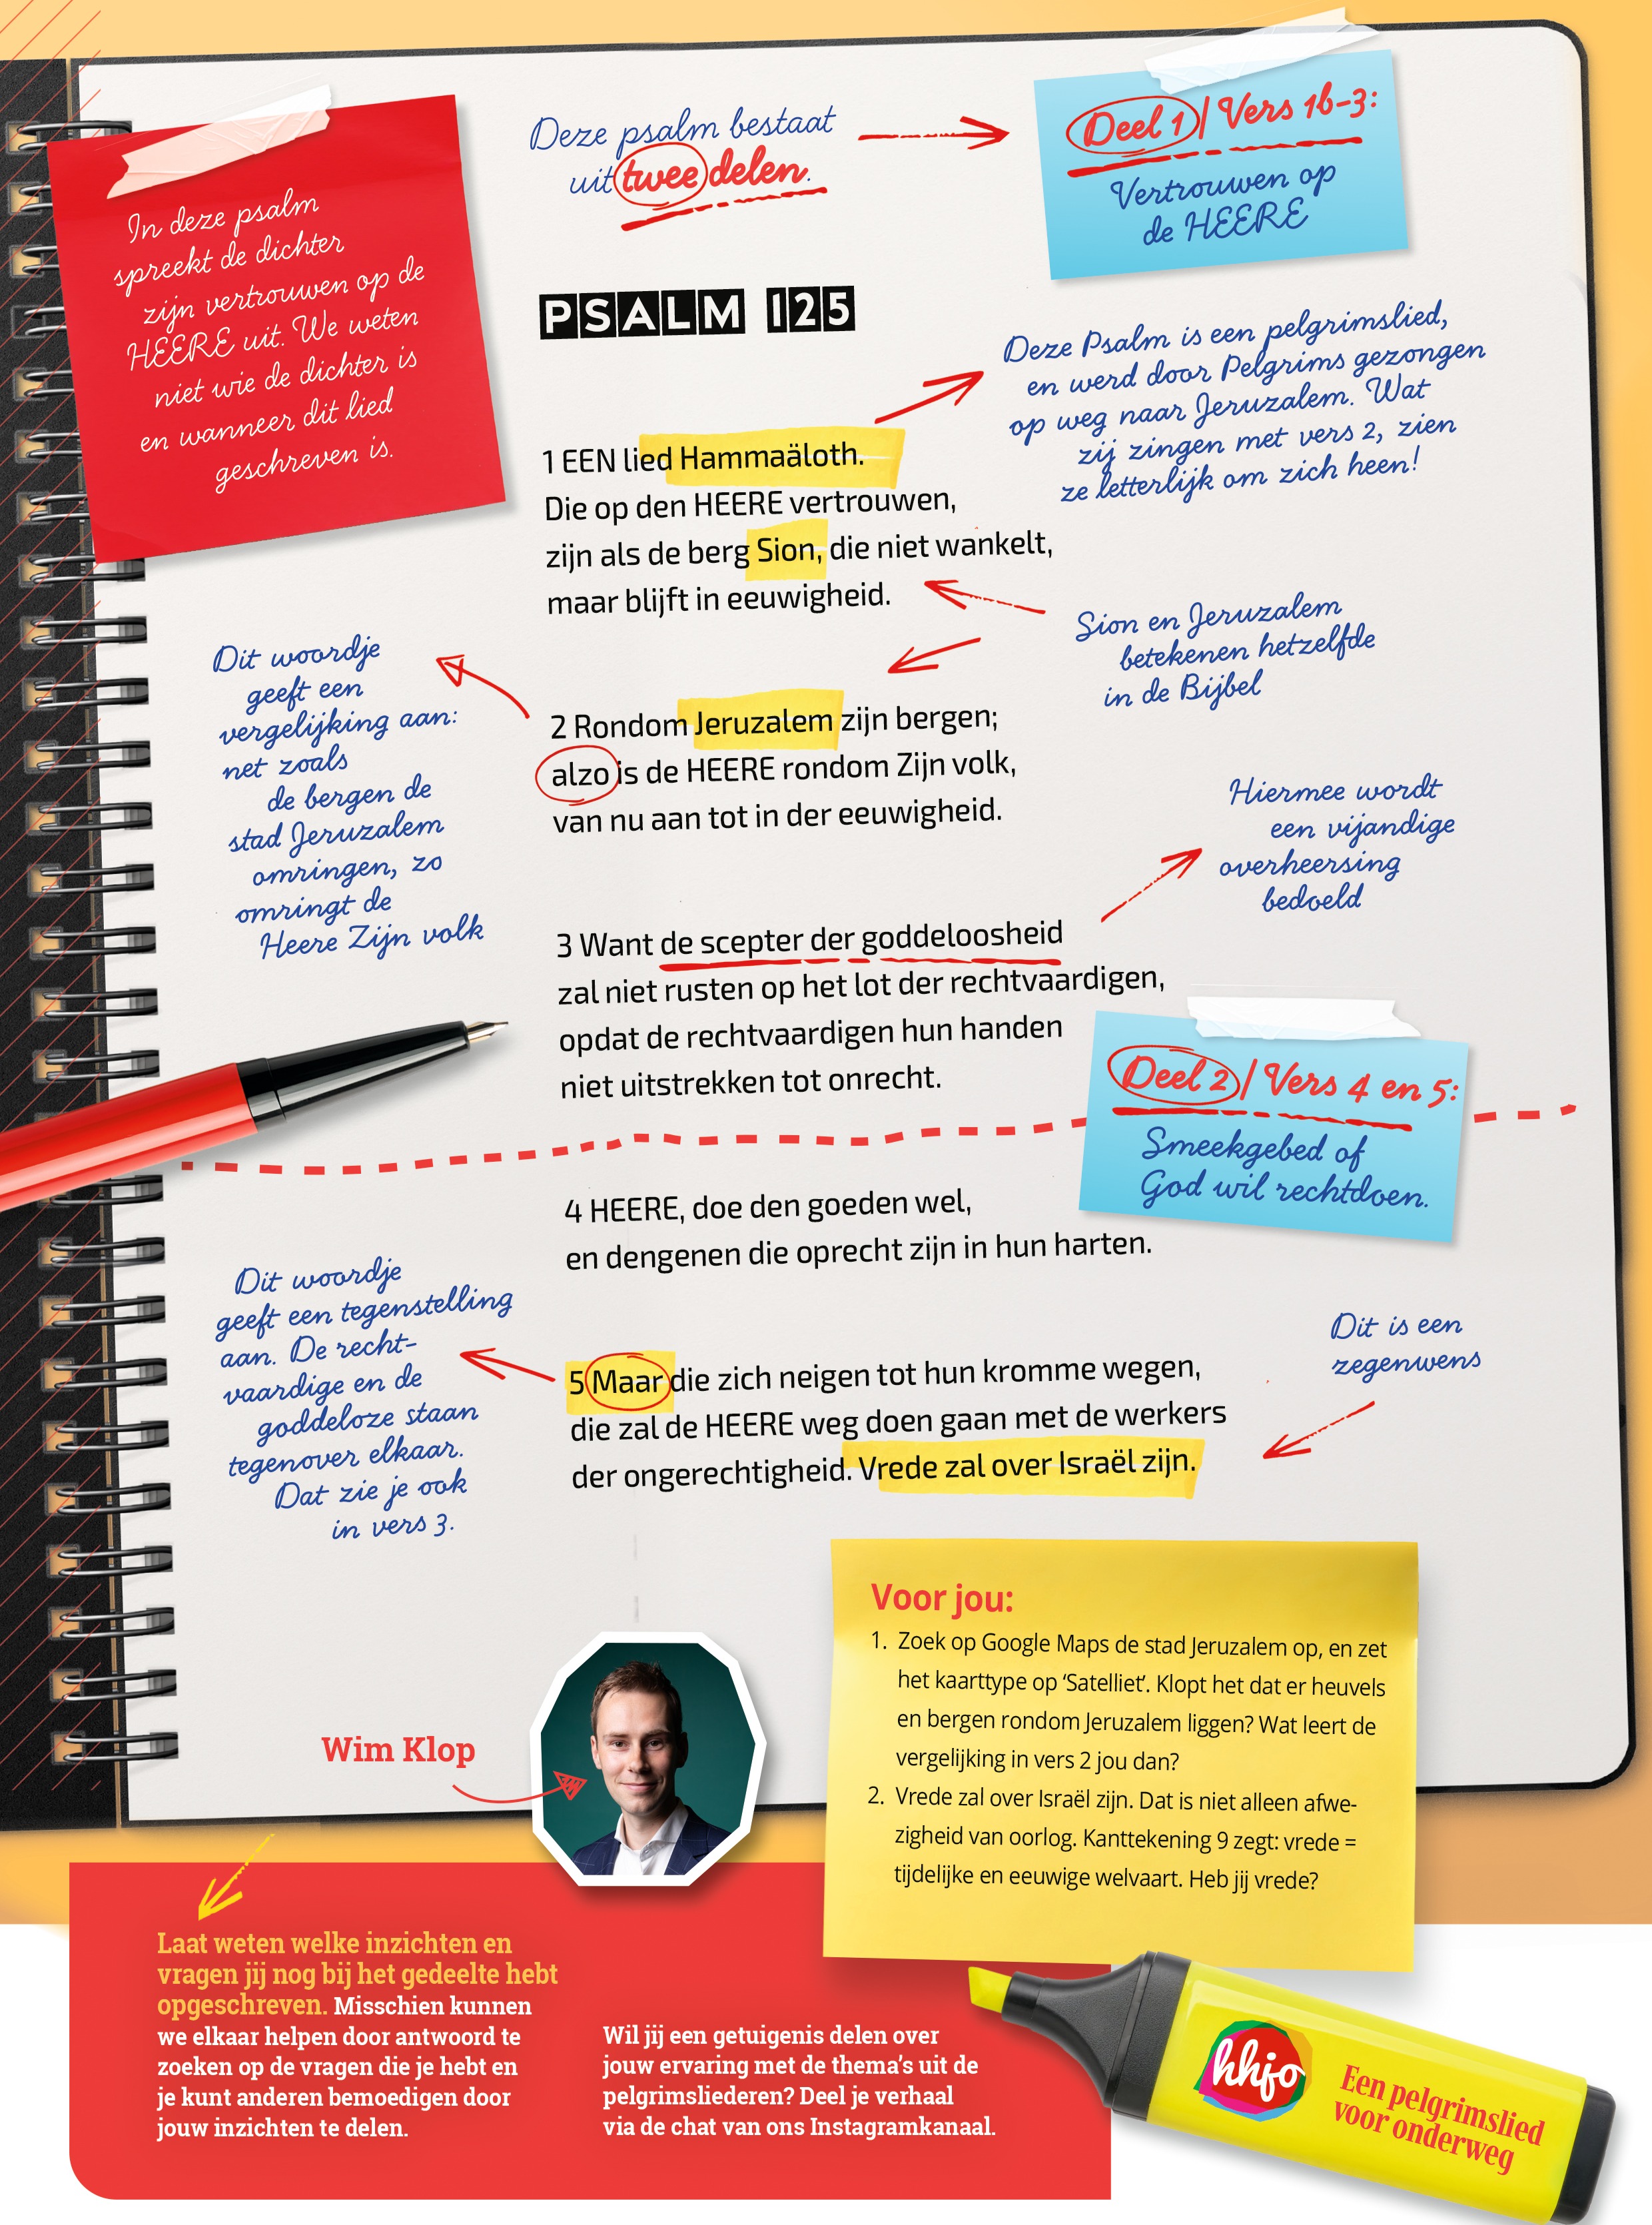 In deze psalm
spreekt de dichter
zijn vertrouwen op de
HEERE uit. We weten
niet wie de dichter is
en wanneer dit lied
geschreven is.
Deze psalm bestaat
uit twee delen.
Deel 1 / Vers 1b-3:
Vertrouwen op
de HEERE
PSALM 125
Deze Psalm is een pelgrimslied,
en werd door Pelgrims gezongen
op weg naar Jeruzalem. Wat
zij zingen met vers 2, zien
ze letterlijk om zich heen!
1 EEN lied Hammaäloth.
Die op den HEERE vertrouwen,
zijn als de berg Sion, die niet wankelt,
maar blijft in eeuwigheid.
Sion en Jeruzalem
betekenen hetzelfde
in de Bijbel
Dit woordje
geeft een
vergelijking aan:
net zoals
de bergen de
stad Jeruzalem
omringen, zo
omringt de
Heere Zijn volk
2 Rondom Jeruzalem zijn bergen;
alzo is de HEERE rondom Zijn volk,
van nu aan tot in der eeuwigheid.
Hiermee wordt
een vijandige
overheersing
bedoeld
3 Want de scepter der goddeloosheid
zal niet rusten op het lot der rechtvaardigen,
opdat de rechtvaardigen hun handen
niet uitstrekken tot onrecht.
Deel 2 / Vers 4 en 5:
Smeekgebed of
God wil rechtdoen.
4 HEERE, doe den goeden wel,
en dengenen die oprecht zijn in hun harten.
Dit woordje
geeft een tegenstelling
aan. De recht-
vaardige en de
goddeloze staan
tegenover elkaar.
Dat zie je ook
in vers 3.
Dit is een
zegenwens
5 Maar die zich neigen tot hun kromme wegen,
die zal de HEERE weg doen gaan met de werkers
der ongerechtigheid. Vrede zal over Israël zijn.
Voor jou:
1. Zoek op Google Maps de stad Jeruzalem op, en zet
het kaarttype op ‘Satelliet’. Klopt het dat er heuvels
en bergen rondom Jeruzalem liggen? Wat leert de
vergelijking in vers 2 jou dan?
2. Vrede zal over Israël zijn. Dat is niet alleen afwe-
zigheid van oorlog. Kanttekening 9 zegt: vrede =
tijdelijke en eeuwige welvaart. Heb jij vrede?
Wim Klop
Laat weten welke inzichten en
vragen jij nog bij het gedeelte hebt
opgeschreven. Misschien kunnen
we elkaar helpen door antwoord te
zoeken op de vragen die je hebt en
je kunt anderen bemoedigen door
jouw inzichten te delen.
Wil jij een getuigenis delen over
jouw ervaring met de thema’s uit de
pelgrimsliederen? Deel je verhaal
via de chat van ons Instagramkanaal.
hhjo
Een pelgrimslied
voor onderweg